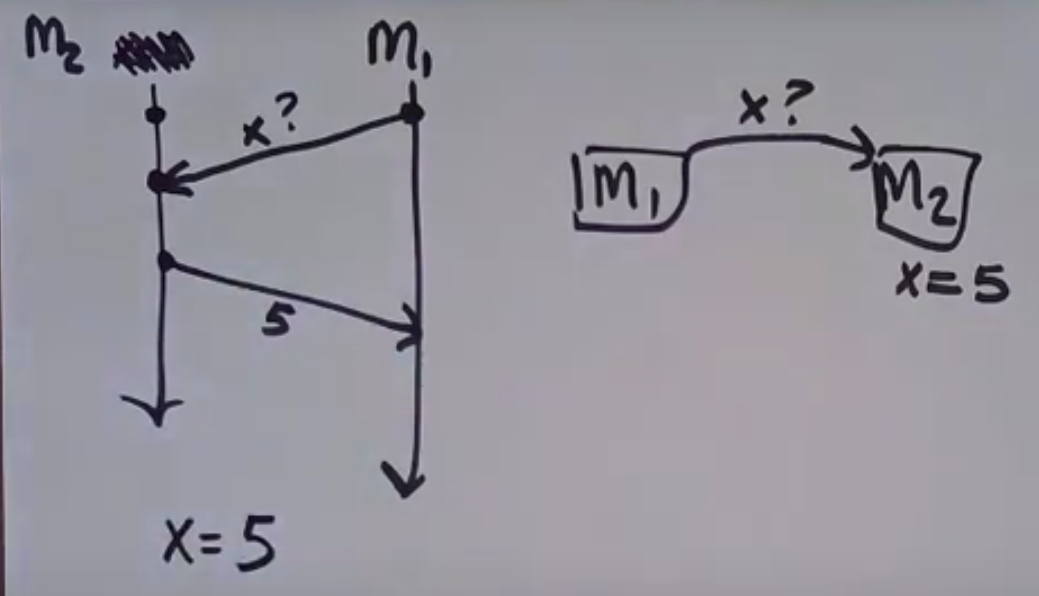 M₂
M₁
x?
5
X=5
x?
M₁
M₂
X=5